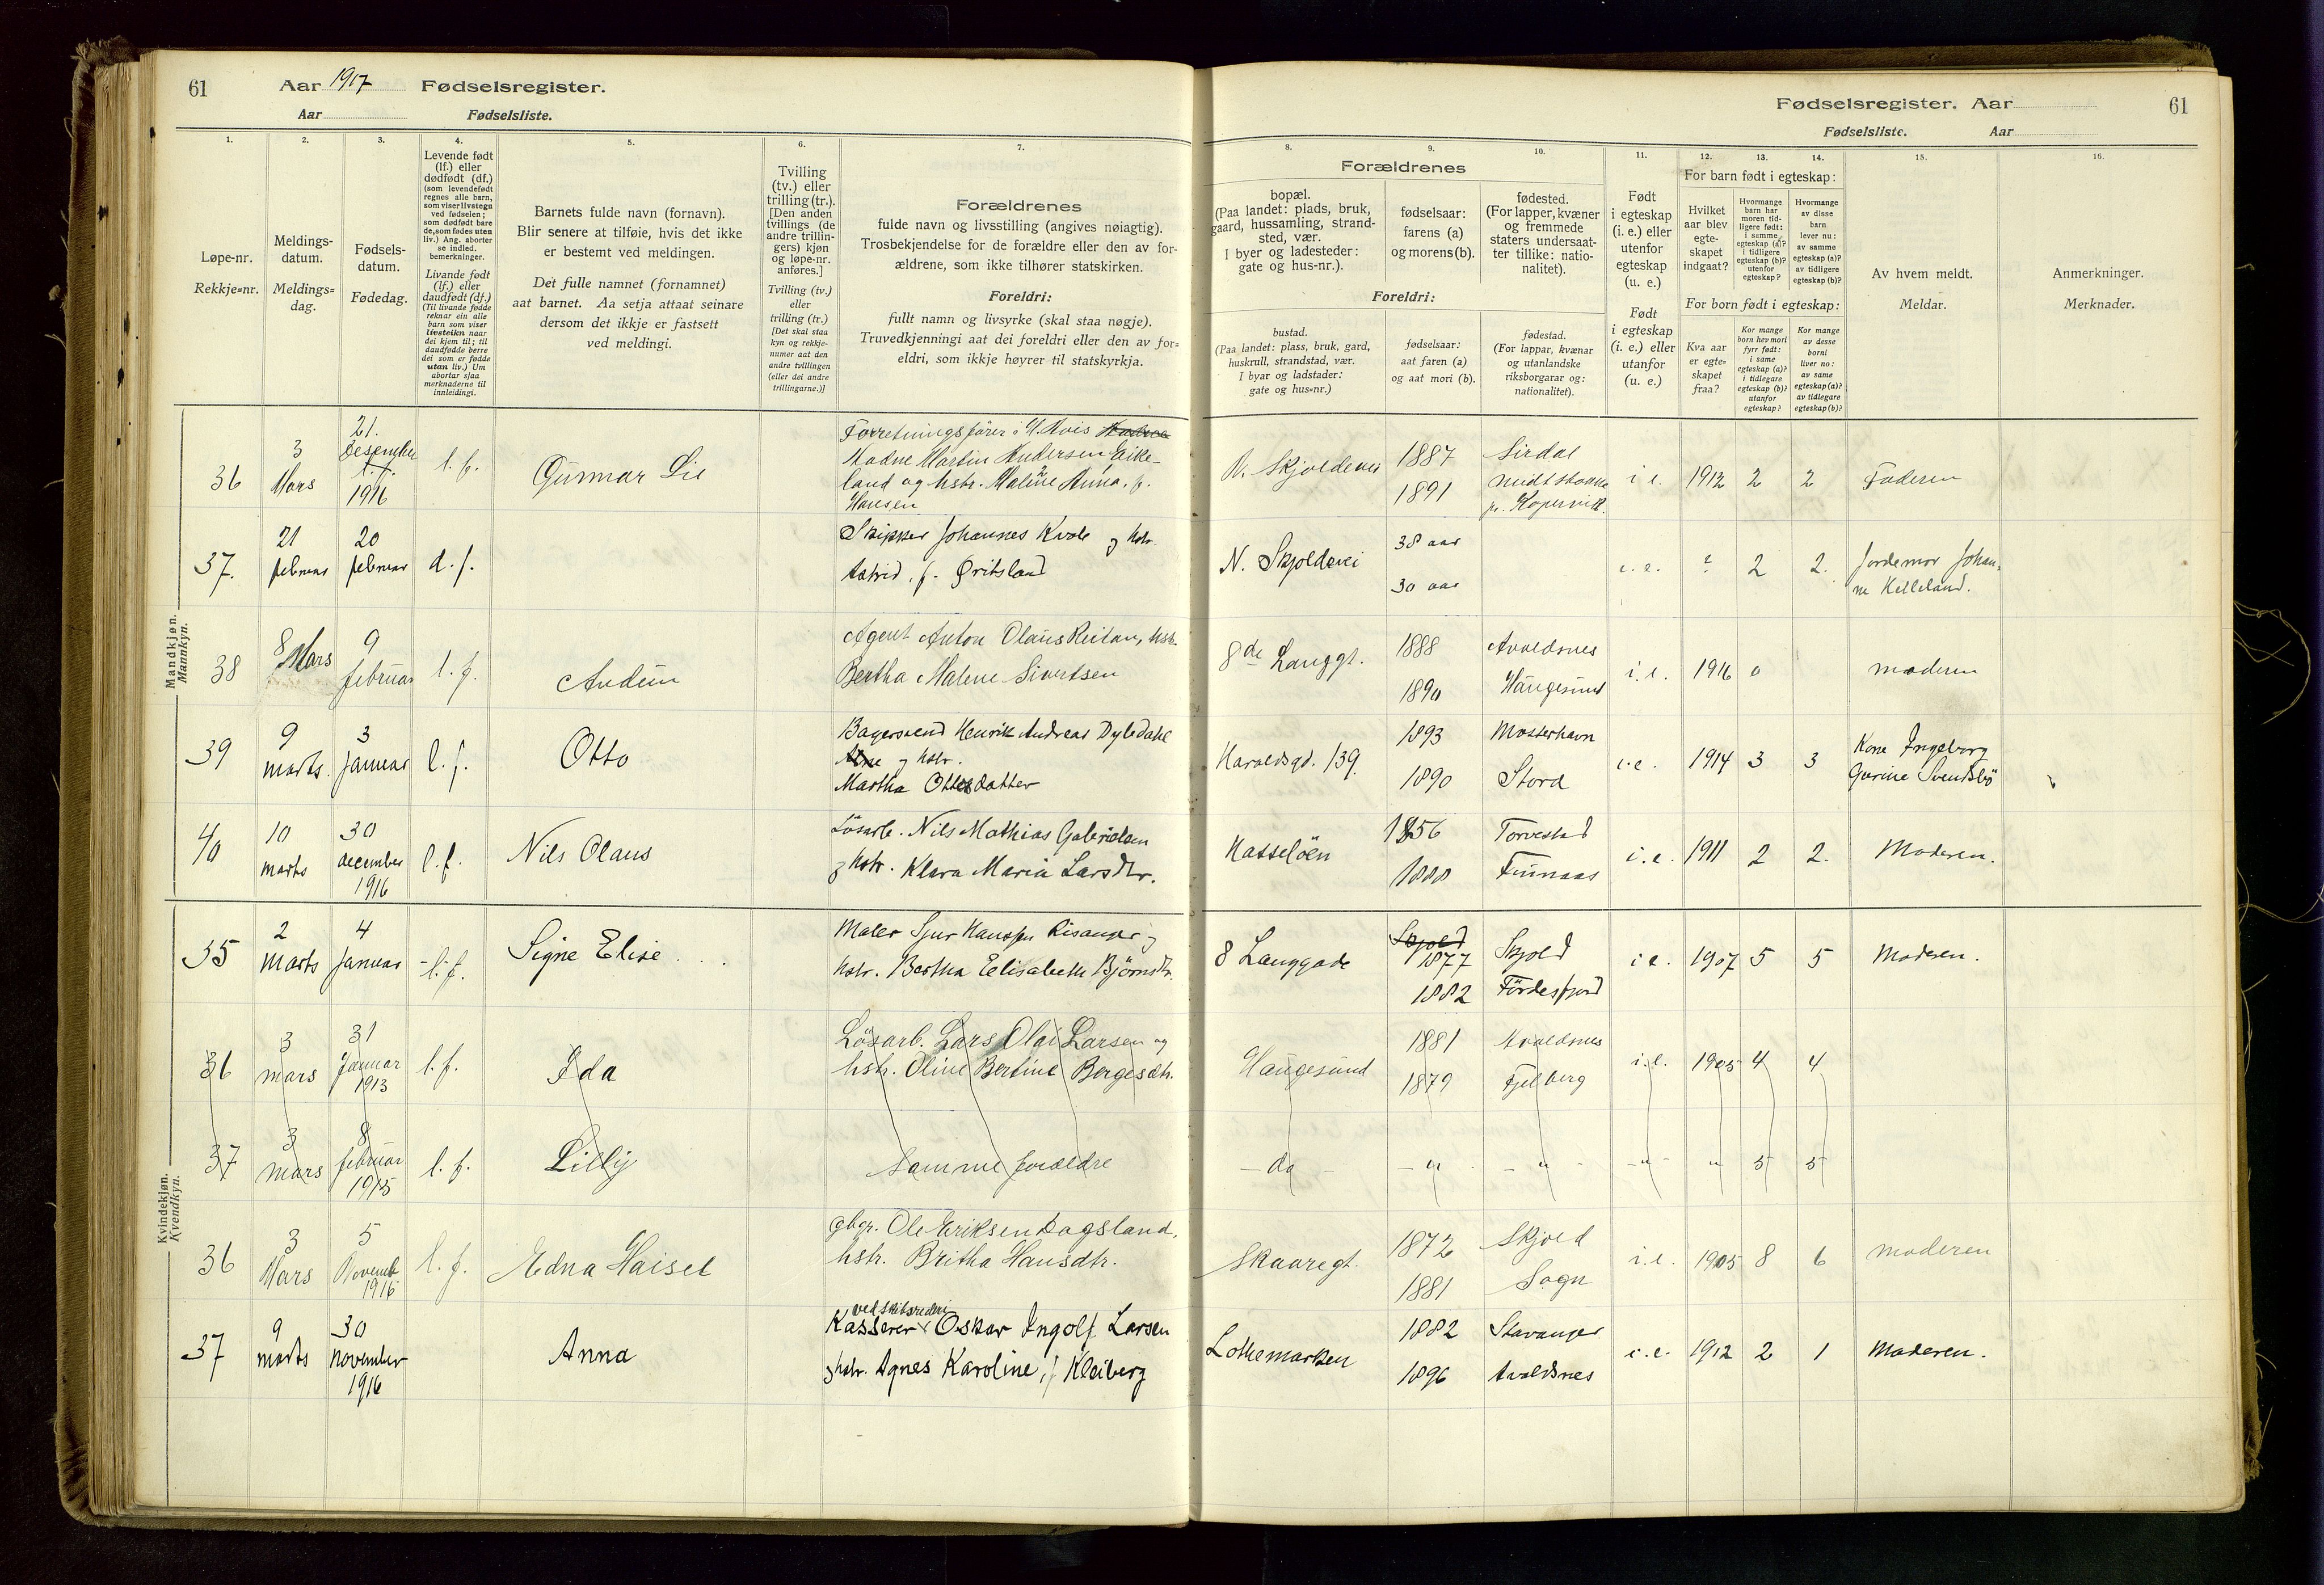 61
Aar 1917 Fødselsregister.
Aar Fødselsliste.
Fødselsregister. Aar
61
Fødselsliste. Aar
1.
Løpe-nr.
Rekkje=nr.
2.
Meldings-
datum.
Meldings=
dag.
3.
Fødsels-
datum.
Fødedag.
4.
Levende født
(lf.) eller
dødfødt (df.)
(som levendefødt
regnes alle barn,
som viser livstegn
ved fødselen;
som dødfødt bare
de, som fødes uten
liv.) Ang. aborter
se indled.
bemerkninger.
Livande født
(lf.) eller
daudfødt (df.)
(Til livande fødde
reknar ein alle
barn som viser
livsteikn naar
dei kjem til; til
daudfødde berre
dei som er fødde
utan liv.) Um
abortar sjaa
merknaderne til
innleidingi.
5.
Barnets fulde navn (fornavn).
Blir senere at tilføie, hvis det ikke
er bestemt ved meldingen.
Det fulle namnet (fornamnet)
aat barnet. Aa setja attaat seinare
dersom det ikkje er fastsett
ved meldingi.
6.
Tvilling
(tv.) eller
trilling (tr.).
[Den anden
tvillings (de
andre trillin-
gers) kjøn
og løpe-nr.
anføres.]
Tvilling (tv.)
eller
trilling (tr.)
[Det skal staa
kyn og rekkje-
numer aat den
andre tvillingen
(eller dei andre
trillingarne.)]
7.
Forældrenes
fulde navn og livsstilling (angives nøiagtig).
Trosbekjendelse for de forældre eller den av for-
ældrene, som ikke tilhører statskirken.
Foreldri:
fullt namn og livsyrke (skal staa nøgje).
Truvedkjenningi aat dei foreldri eller den av for=
eldri, som ikkje høyrer til statskyrkja.
Forældrenes
8.
bopæl.
(Paa landet: plads, bruk,
gaard, hussamling, strand-
sted, vær.
I byer og ladesteder:
gate og hus-nr.).
9.
fødselsaar:
farens (a)
og morens (b).
10.
fødested.
(For lapper, kvæner
og fremmede
staters undersaat-
ter tillike: natio-
nalitet).
Foreldri:
bustad.
(Paa landet: plass, bruk, gard,
huskrull, strandstad, vær.
I byar og ladstader:
gate og hus=nr.)
fødselsaar:
aat faren (a)
og aat mori (b).
fødestad.
(For lappar, kvænar
og utanlandske
riksborgarar og:
nationalitet).
11.
Født
i egteskap
(i. e.) eller
utenfor
egteskap
(u. e.)
Født
i egteskap
(i. e.) eller
utanfor
(u. e.)
12.
13.
14.
For barn født i egteskap:
Hvilket
aar blev
egte-
skapet
indgaat?
Hvormange
barn har
moren tid-
ligere født:
i samme
egteskap (a)?
i tidligere
egteskap (b)?
utenfor
egteskap?
Hvormange
av disse
barn
lever nu:
av samme
egteskap (a)?
av tidligere
egteskap (b)?
For born født i egteskap:
Kva aar
er egte=
skapet
fraa?
Kor mange
born hev mori
fyrr født:
i same
egteskap (a)?
i tidlegare
egteskap (b)?
utanfor
egteskap?
Kor mange
av desse
borni
liver no:
av same
egteskap (a)?
av tidlegare
egteskap (b)?
15.
Av hvem meldt.
Meldar.
16.
Anmerkninger.
Merknader.
Mandkjøn.
Mannkyn.
36 3 Mars 21. Desember 1916 l. f. Gunnar Lie
Forretningsfører i H. Avis
Madne Martin Andersen Eike-
land og hstr. Maline Anna, f.
Hansen
N. Skjoldevei 1887 1891 Sirdal
pr. Kopervik. i e. 1912 2 2 Faderen
37. 21 februar 20 februar d. f.
Skipper Johannes Kvale og hstr.
Astrid, f. Øritsland
N. Skjoldevei 38 aar 30 aar i. e. ? 2 2. Jordemor Johan-
ne Helleland.
38 8 Mars 9 februar l. f. Audun
Agent Anton Olaus Reitan, hstr.
Bertha Malene Sivertsen
8de Langgt. 1888 1890 Avaldsnes Haugesund i. e. 1916 0 moderen
39 9 marts. 3 Januar l. f. Otto
Bagersvend Henrik Andreas Dyledahl
og hstr.
Martha Ottesdatter
Haraldsgd. 139. 1893 1890 Mosterhavn Stord i.e. 1914 3 3 Kone Ingeborg
Gurine Svendsbö
40 10 marts 30 december 1916 l. f. Nils Olaus
Lösarb. Nils Mathias Gabrielsen
og hstr. Klara Maria Larsdtr.
Hasselöen 1856 1888 Torvestad Finnaas i. e. 1911 2 2. Moderen.
Kvindekjøn.
Kvendkyn.
35 2 Marts 4 Januar l. f. Signe Elise
Maler Sjur Hanssen Risanger og
hstr. Bertha Elisabeth Björnsdtr.
8 Langgade Skjold 1877 1882 Skjold Fördesfjord i e. 1907 5 5 Moderen.
36 3 mars 31 Januar 1913 l. f. Ida
Lösarb. Lars Olai Larsen og
hstr. Oline Bertine Bergesdtr.
Haugesund 1881 1879 Avaldsnes Fjelberg i. e. 1905 4 4
37 3 mars 8 februar 1915 l. f. Lilly
Samme forældre
– do – – " – – " – – " – " 5 5
36 3 Mars 5 Novemb 1916 l. f. Edna Haisel
gbgr. Ole Eriksen Dagsland,
hstr. Britha Hansdtr.
Skaaregt. 1872 1881 Skjold Sogn i. e. 1905 8 6 moderen
37 9 marts 30 november 1916 Anna
ved skibsrederi
Kasserer Oskar Ingolf Larsen
og hstr. Agnes Karoline, f. Kleiberg
Lothemarken 1882 1896 Stavanger Avaldsnes i. e. 1912 2 1 Moderen.